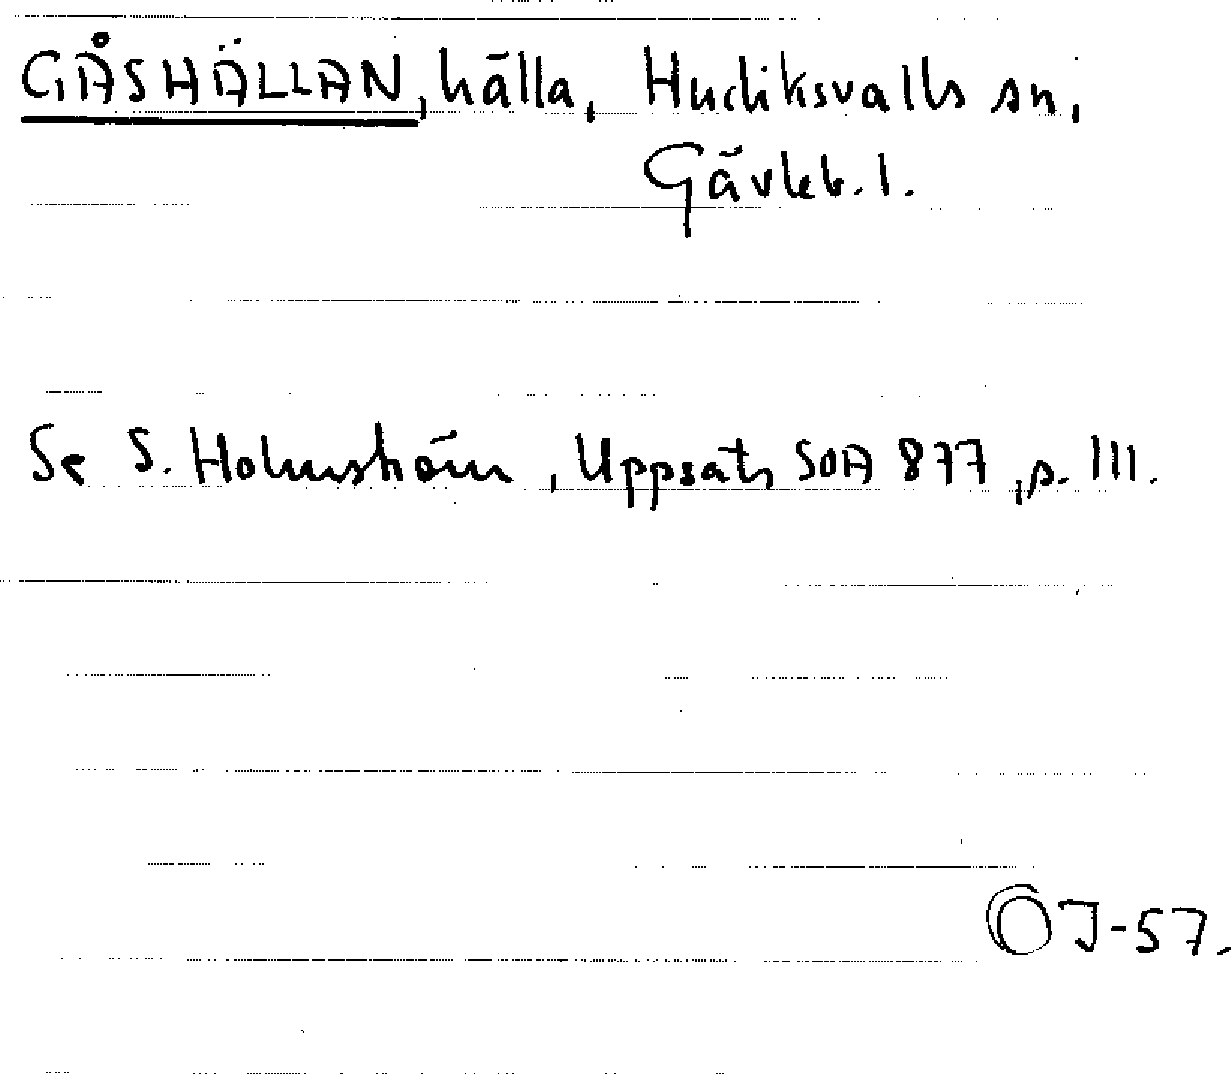 GÅSHÄLLAN, hälla, Hudiksvalls sn,
Gävleb. l.
Se S. Holmström, Uppsats SOA 877, s. 111.
OJ-57.